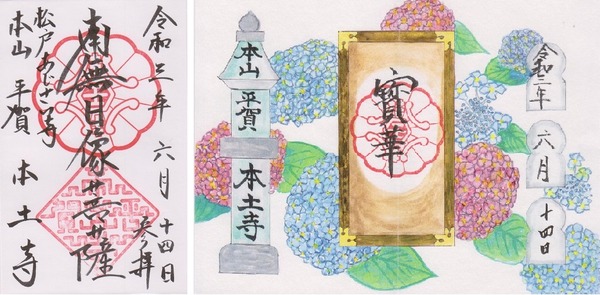 令和三年 六月 十四日
南無日像菩薩
松戸あじさい寺
本山 平賀 本土寺
令和三年
六月
十四日
寳華
本山
平賀
本土寺